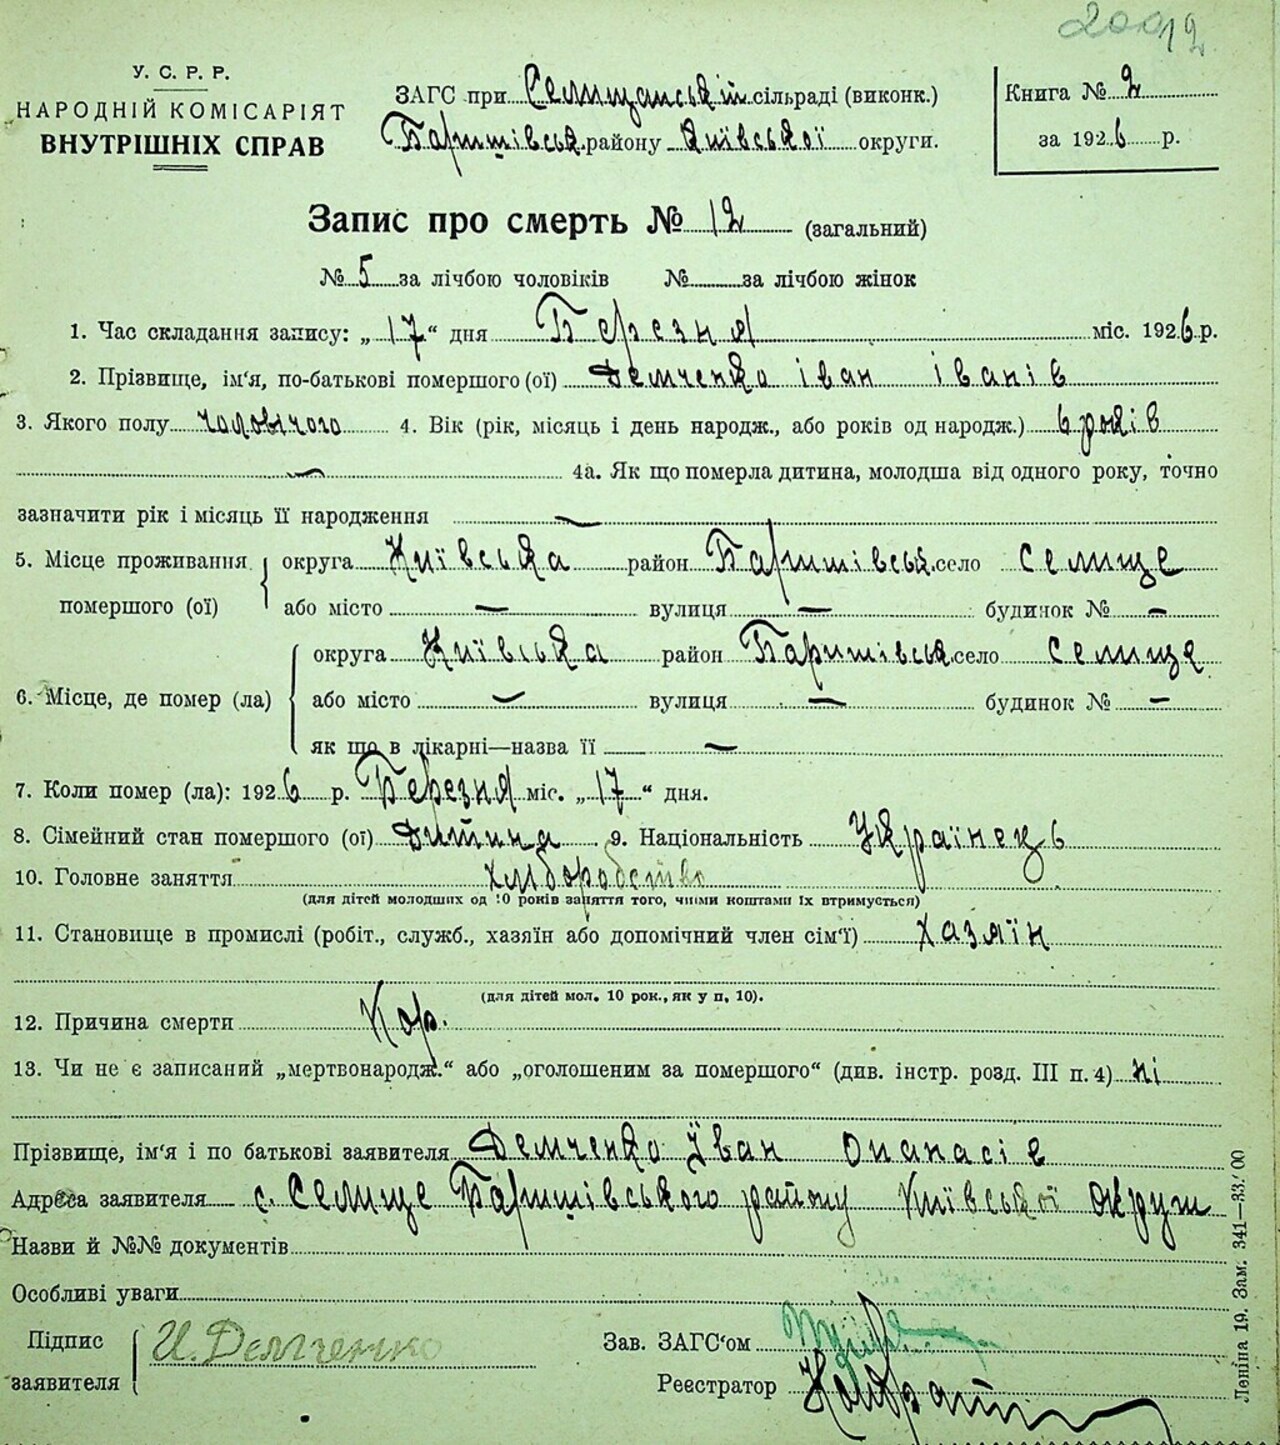 У. С. Р. Р.
НАРОДНІЙ КОМІСАРІЯТ
ВНУТРІШНІХ СПРАВ
ЗАГС при Селищанській сільраді (виконк.)
Баришівськ. району Київської округи.
Книга № 2
за 1926 р.
Запис про смерть № 12 (загальний)
№ 5 за лічбою чоловіків № за лічбою жінок
1. Час складання запису: „17“ дня Березня міс. 1926 р.
2. Прізвище, ім‘я, по-батькові помершого (ої) Демченко іван іванів
3. Якого полу чоловічого 4. Вік (рік, місяць і день народж., або років од народж.) 6 років
— 4а. Як що померла дитина, молодша від одного року, точно
зазначити рік і місяць її народження —
5. Місце проживання помершого (ої) округа Київська район Баришівськ. село Селище
або місто — вулиця — будинок № —
6. Місце, де помер (ла) округа Київська район Баришівськ. село Селище
або місто — вулиця — будинок № —
як що в лікарні—назва її —
7. Коли помер (ла): 1926 р. Березня міс. „17“ дня.
8. Сімейний стан помершого (ої) Дитина 9. Національність Українець
10. Головне заняття хліборобство
(для дітей молодших од 10 років заняття того, чиїми коштами їх втримується)
11. Становище в промислі (робіт., служб., хазяїн або допомічний член сім‘ї) хазяїн
(для дітей мол. 10 рок., як у п, 10).
12. Причина смерти Кор.
13. Чи не є записаний „мертвонародж.“ або „оголошеним за помершого“ (див. інстр. розд. III п. 4) ні
Прізвище, ім‘я і по батькові заявителя Демченко Їван Опанасів
Адреса заявителя с. Селище Баришівського району Київської округи
Назви й №№ документів
Особливі уваги
Підпис заявителя И. Демченко
Зав. ЗАГС‘ом
Реєстратор
Леніна 19. Зам. 341—